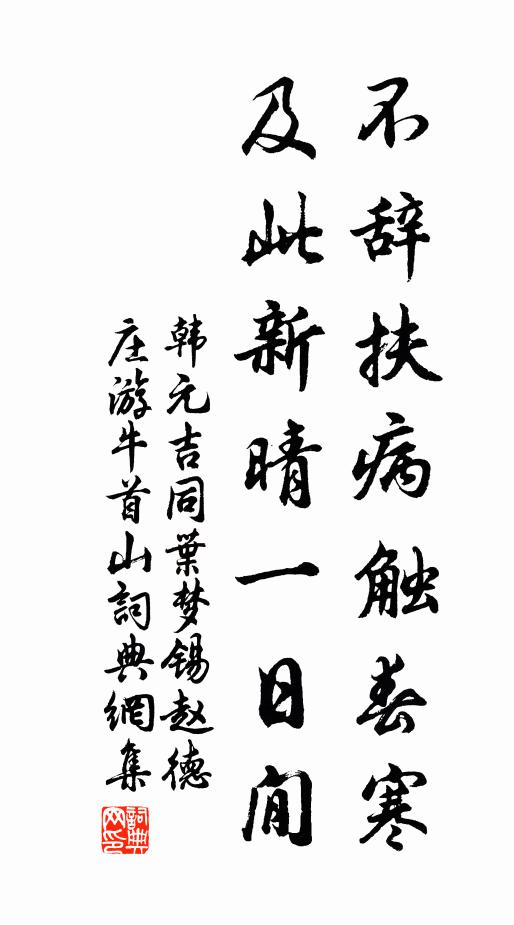 不辞扶病触春寒
及此新晴一日间
韩元吉同葉梦锡赵德
庄游牛首山詞典網集
詞典
网印